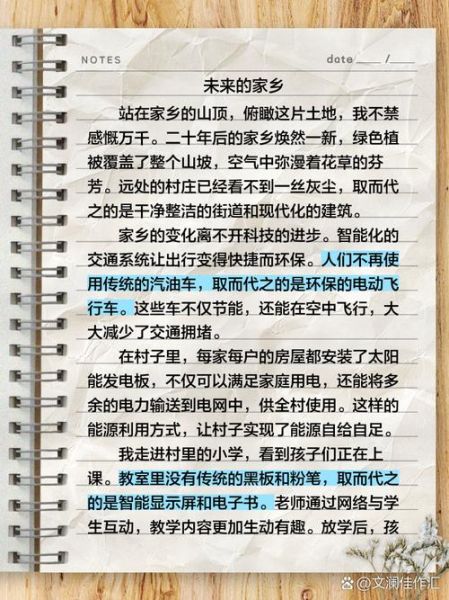 NOTES date ___ /___
未来的家乡
站在家乡的山顶，俯瞰这片土地，我不禁
感慨万千。二十年后的家乡焕然一新，绿色植
被覆盖了整个山坡，空气中弥漫着花草的芬
芳。远处的村庄已经看不到一丝灰尘，取而代
之的是干净整洁的街道和现代化的建筑。
家乡的变化离不开科技的进步。智能化的
交通系统让出行变得快捷而环保。人们不再使
用传统的汽油车，取而代之的是环保的电动飞
行车。这些车不仅节能，还能在空中飞行，大
大减少了交通拥堵。
在村子里，每家每户的房屋都安装了太阳
能发电板，不仅可以满足家庭用电，还能将多
余的电力输送到电网中，供全村使用。这样的
能源利用方式，让村子实现了能源自给自足。
我走进村里的小学，看到孩子们正在上
课。教室里没有传统的黑板和粉笔，取而代之
的是智能显示屏和电子书。老师通过网络与学
生互动，教学内容更加生动有趣。放学后，孩
@文澜佳作汇